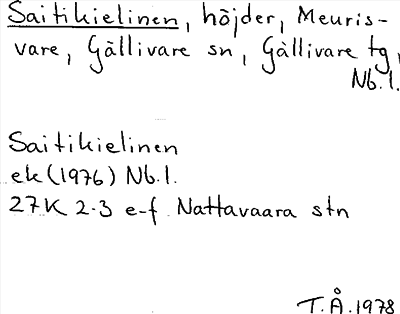 Saitikielinen, höjder, Meuris-
vare, Gällivare sn, Gällivare tg,
Nb.l.
Saitikielinen
ek (1976) Nb.l.
27K 2-3 e-f Nattavaara stn
T.Å.1978